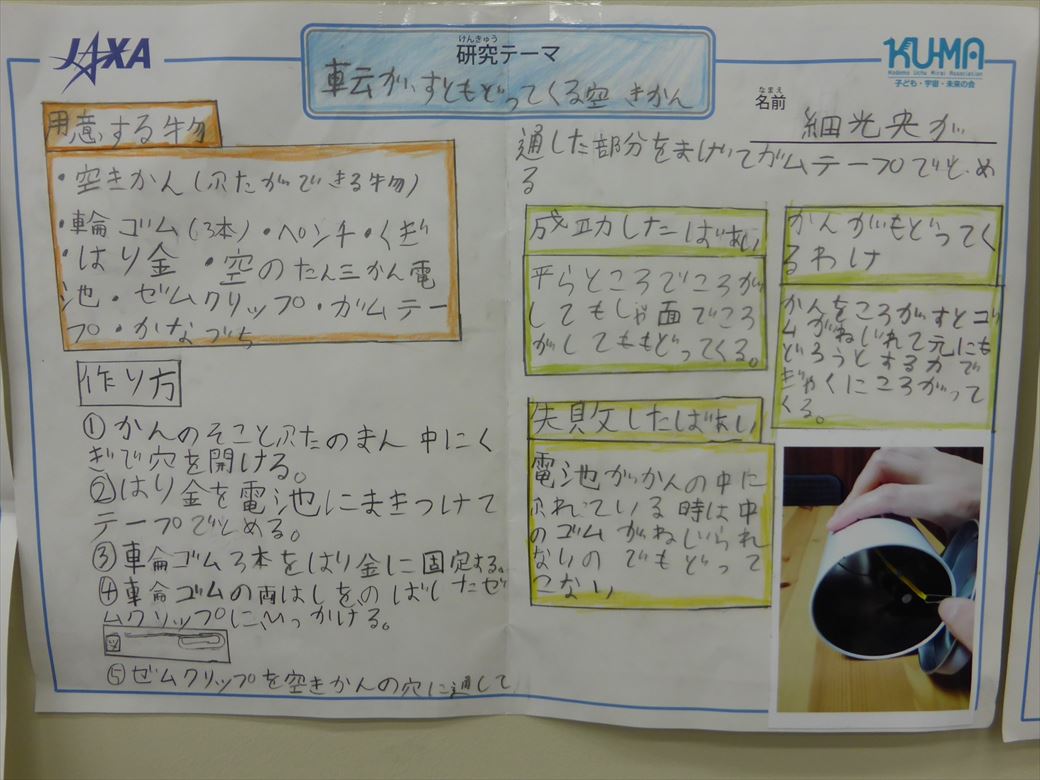 JAXA
けんきゅう
研究テーマ
転がすともどってくる空きかん
KUMA
Kodomo Uchu Mirai Association
子ども・宇宙・未来の会
なまえ
名前
細光央が
用意する物
・空きかん(ふたができる物)
・輪ゴム(3本)・ペンチ・くぎ
・はり金 ・空のたん三かん電
池・ゼムクリップ・ガムテー
プ・かなづち
作り方
①かんのそことふたのまん中にく
ぎで穴を開ける。
②はり金を電池にまきつけて
テープでとめる。
③輪ゴム3本をはり金に固定する。
④輪ゴムの両はしをのばしたゼ
ムクリップにひっかける。
⑤ゼムクリップを空きかんの穴に通して
通した部分をまげてガムテープでとめ
る
成功したばあい
平らところでころが
してもしゃ面でころ
がしてももどってくる。
失敗したばあい
電池がっかんの中に
ふれている時は中
のゴムがねじられ
ないのでもどって
こない
かんがもどってく
るわけ
かんをころがすとゴ
ムがねじれて元にも
どろうとする力で
ぎゃくにころがって
くる。